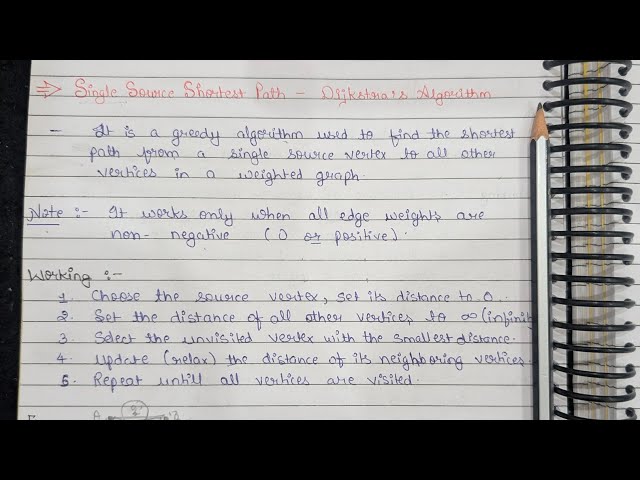 ⇒ Single Source Shortest Path - Dijkstra's Algorithm
- It is a greedy algorithm used to find the shortest
path from a single source vertex to all other
vertices in a weighted graph.
Note :- It works only when all edge weights are
non-negative (0 or positive).
Working :-
1. Choose the source vertex, set its distance to 0.
2. Set the distance of all other vertices to ∞ (infinity
3. Select the unvisited vertex with the smallest distance.
4. Update (relax) the distance of its neighboring vertices.
5. Repeat untill all vertices are visited.
A 2